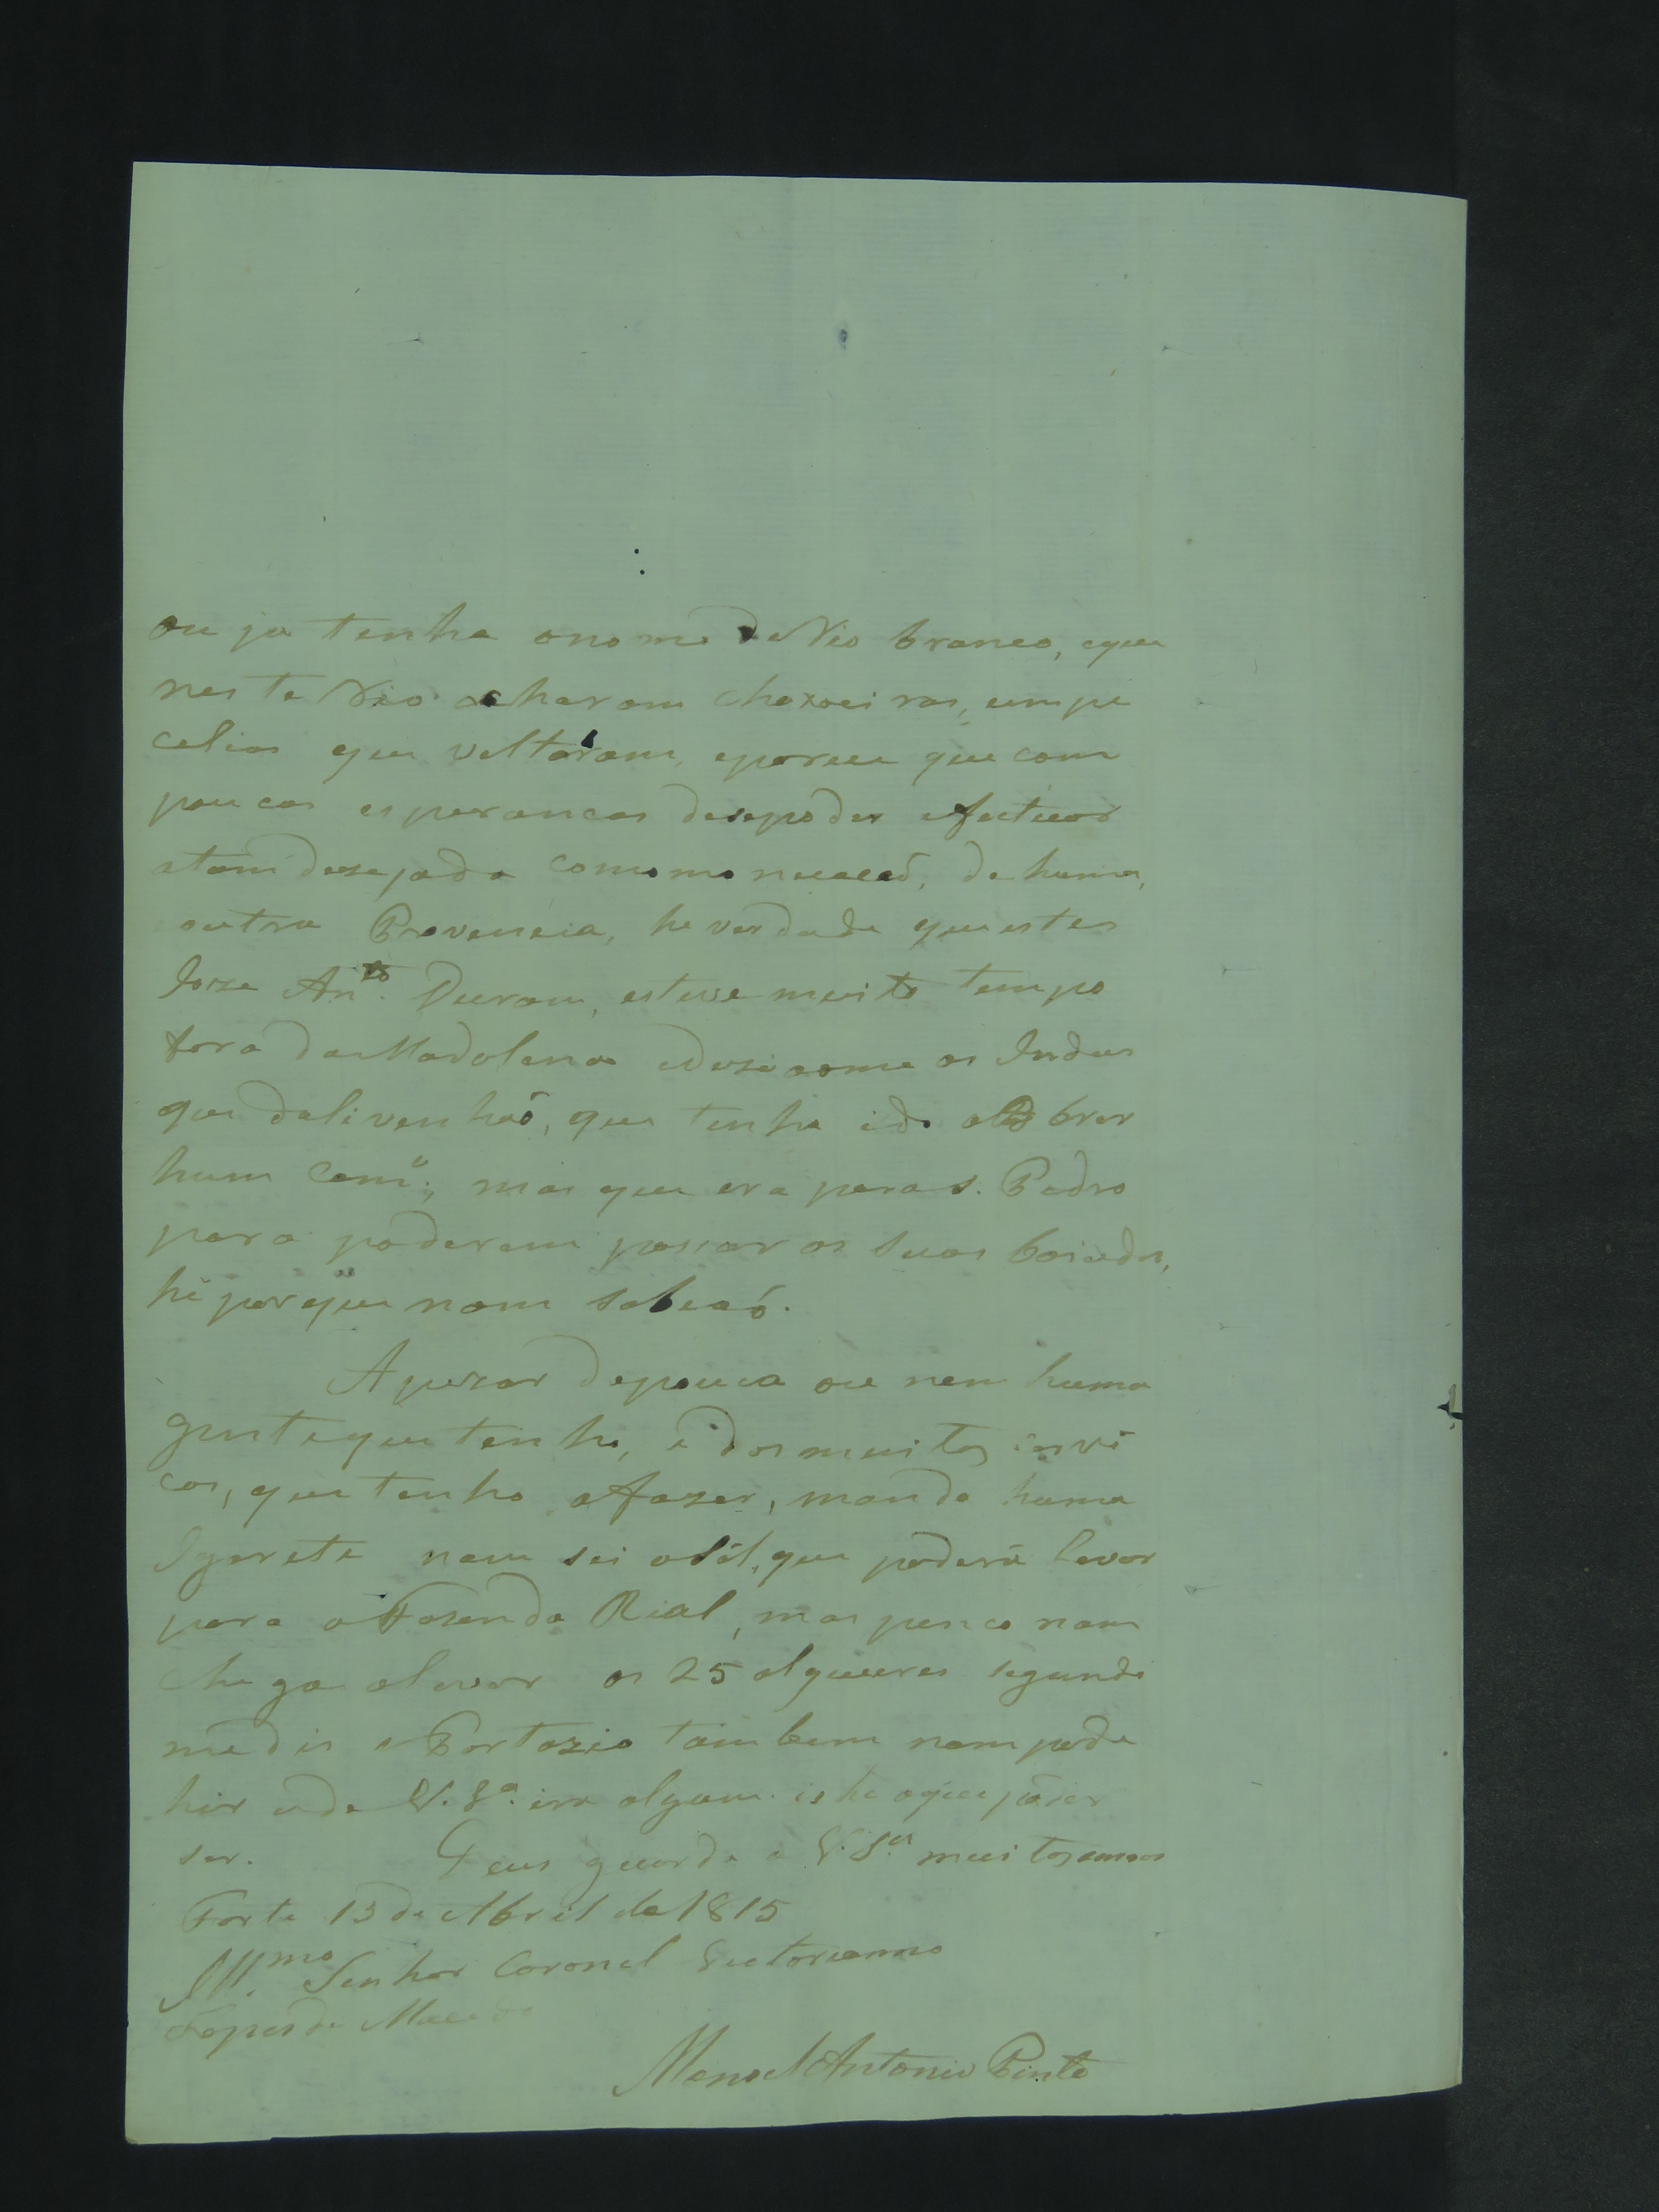 ou ja tenha onome de Rio branco, eque
neste Rio acharam choxoeiras, empe
celios que voltáram, eporem que com
poucas esperancas desepoder efectuar
atam desejada comomonicacaõ, dehuma,
outra Provencia, he verdade que estes
Joze Anto. Duram, esteve muito tempo
fora da Madalena edizia ome os Indios
que dalivenhaõ, que tenha ido abrir
hum Camo., mas que era para S. Pedro
para poderem passar as suas boiadas,
hé porque nam sabeaõ.
Apezar depouca ou nem huma
gentequetenho, e dos muitos servi
cos, que tenho afazer, mando huma
Igarete nam sei osál, que poderá levar
para aFazenda Rial, mas penco nam
chega alevar os 25 alqueires segundo
medis o Portazio tambem nam pode
hir ede V. Sa. irr algum is he oque páser
ser. Deus guarde a V. Sa. muitosannos
Forte 13 de Abril de 1815
Illmo. Senhor Coronel Victorianno
Lopes de Macedo
Manoel Antonio Pinto